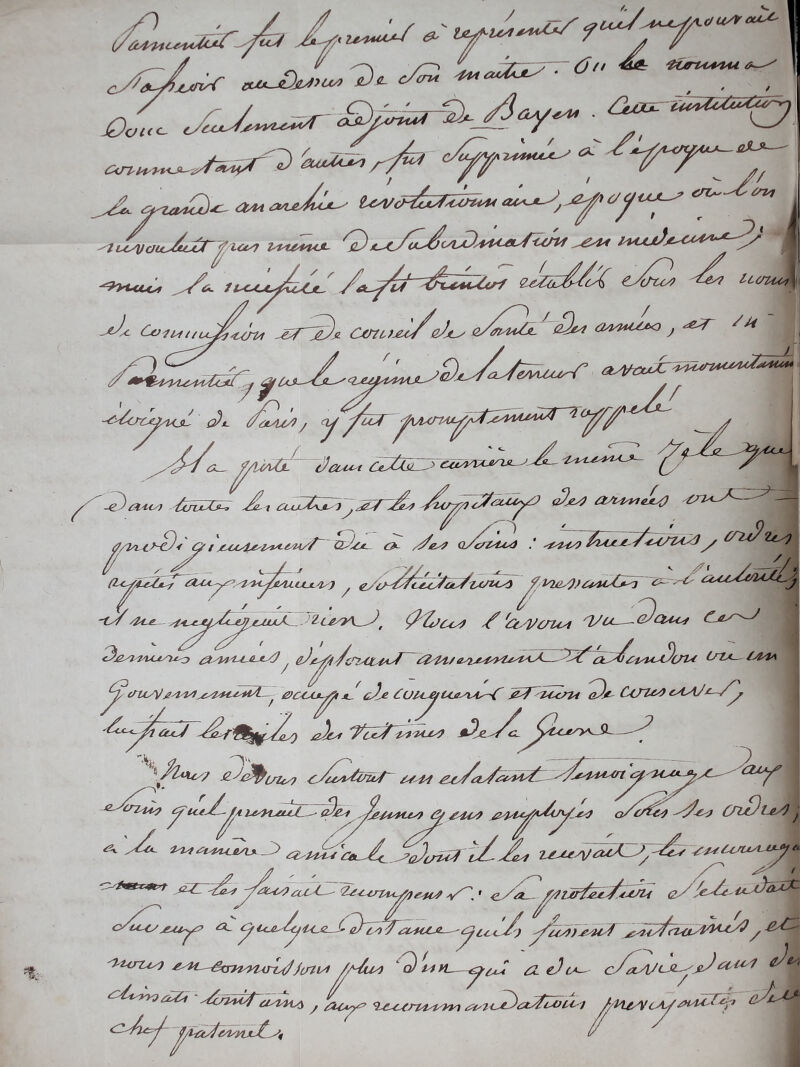 Parmentier fut le premier à représenter qu'il ne pouvait
s'asseoir au dessus de son maitre. On le nomma
donc seulement adjoint de Bayen. Cette institution
comme tant d'autres, fut supprimée à l'époque de
la grande anarchie révolutionnaire, époque où l'on
ne voulait pas même de subordination en médecine;
mais la nécessité la fit bientôt rétablir sous les noms
de commission et de conseil de santé des armées, et
Parmentier, que le régime de la terreur avait momentaném
éloigné de Paris, y fut promptement rappelé
Il a porté dans cette carrière le même zèle que
dans toutes les autres, et les hopitaux des armées ont
prodigieusement dû à ses soins: instructions, ordres
répétés aux inférieurs, sollicitations pressantes à l'autorité;
il ne negligeait rien. Nous l'avons vu dans ces
dernieres années, déplorant amerement l'abandon où un
Gouvernement, occupé de conquerir et non de conserver,
laissait les asiles des victimes de la Guerre
Nous devons surtout un eclatant temoignage aux
soins qu'il prenait des Jeunes gens employés sous ses ordres,
à la manière amicale dont il les recevait, les encouragea
et les faisait recompenser: sa protection s'etendait
sur eux à quelque distance qu'ils fussent entrainés, et
nous en connoissons plus d'un qui a du sa vie, dans des
climats lointains, aux recommandations prevoyantes de ce
chef paternel.